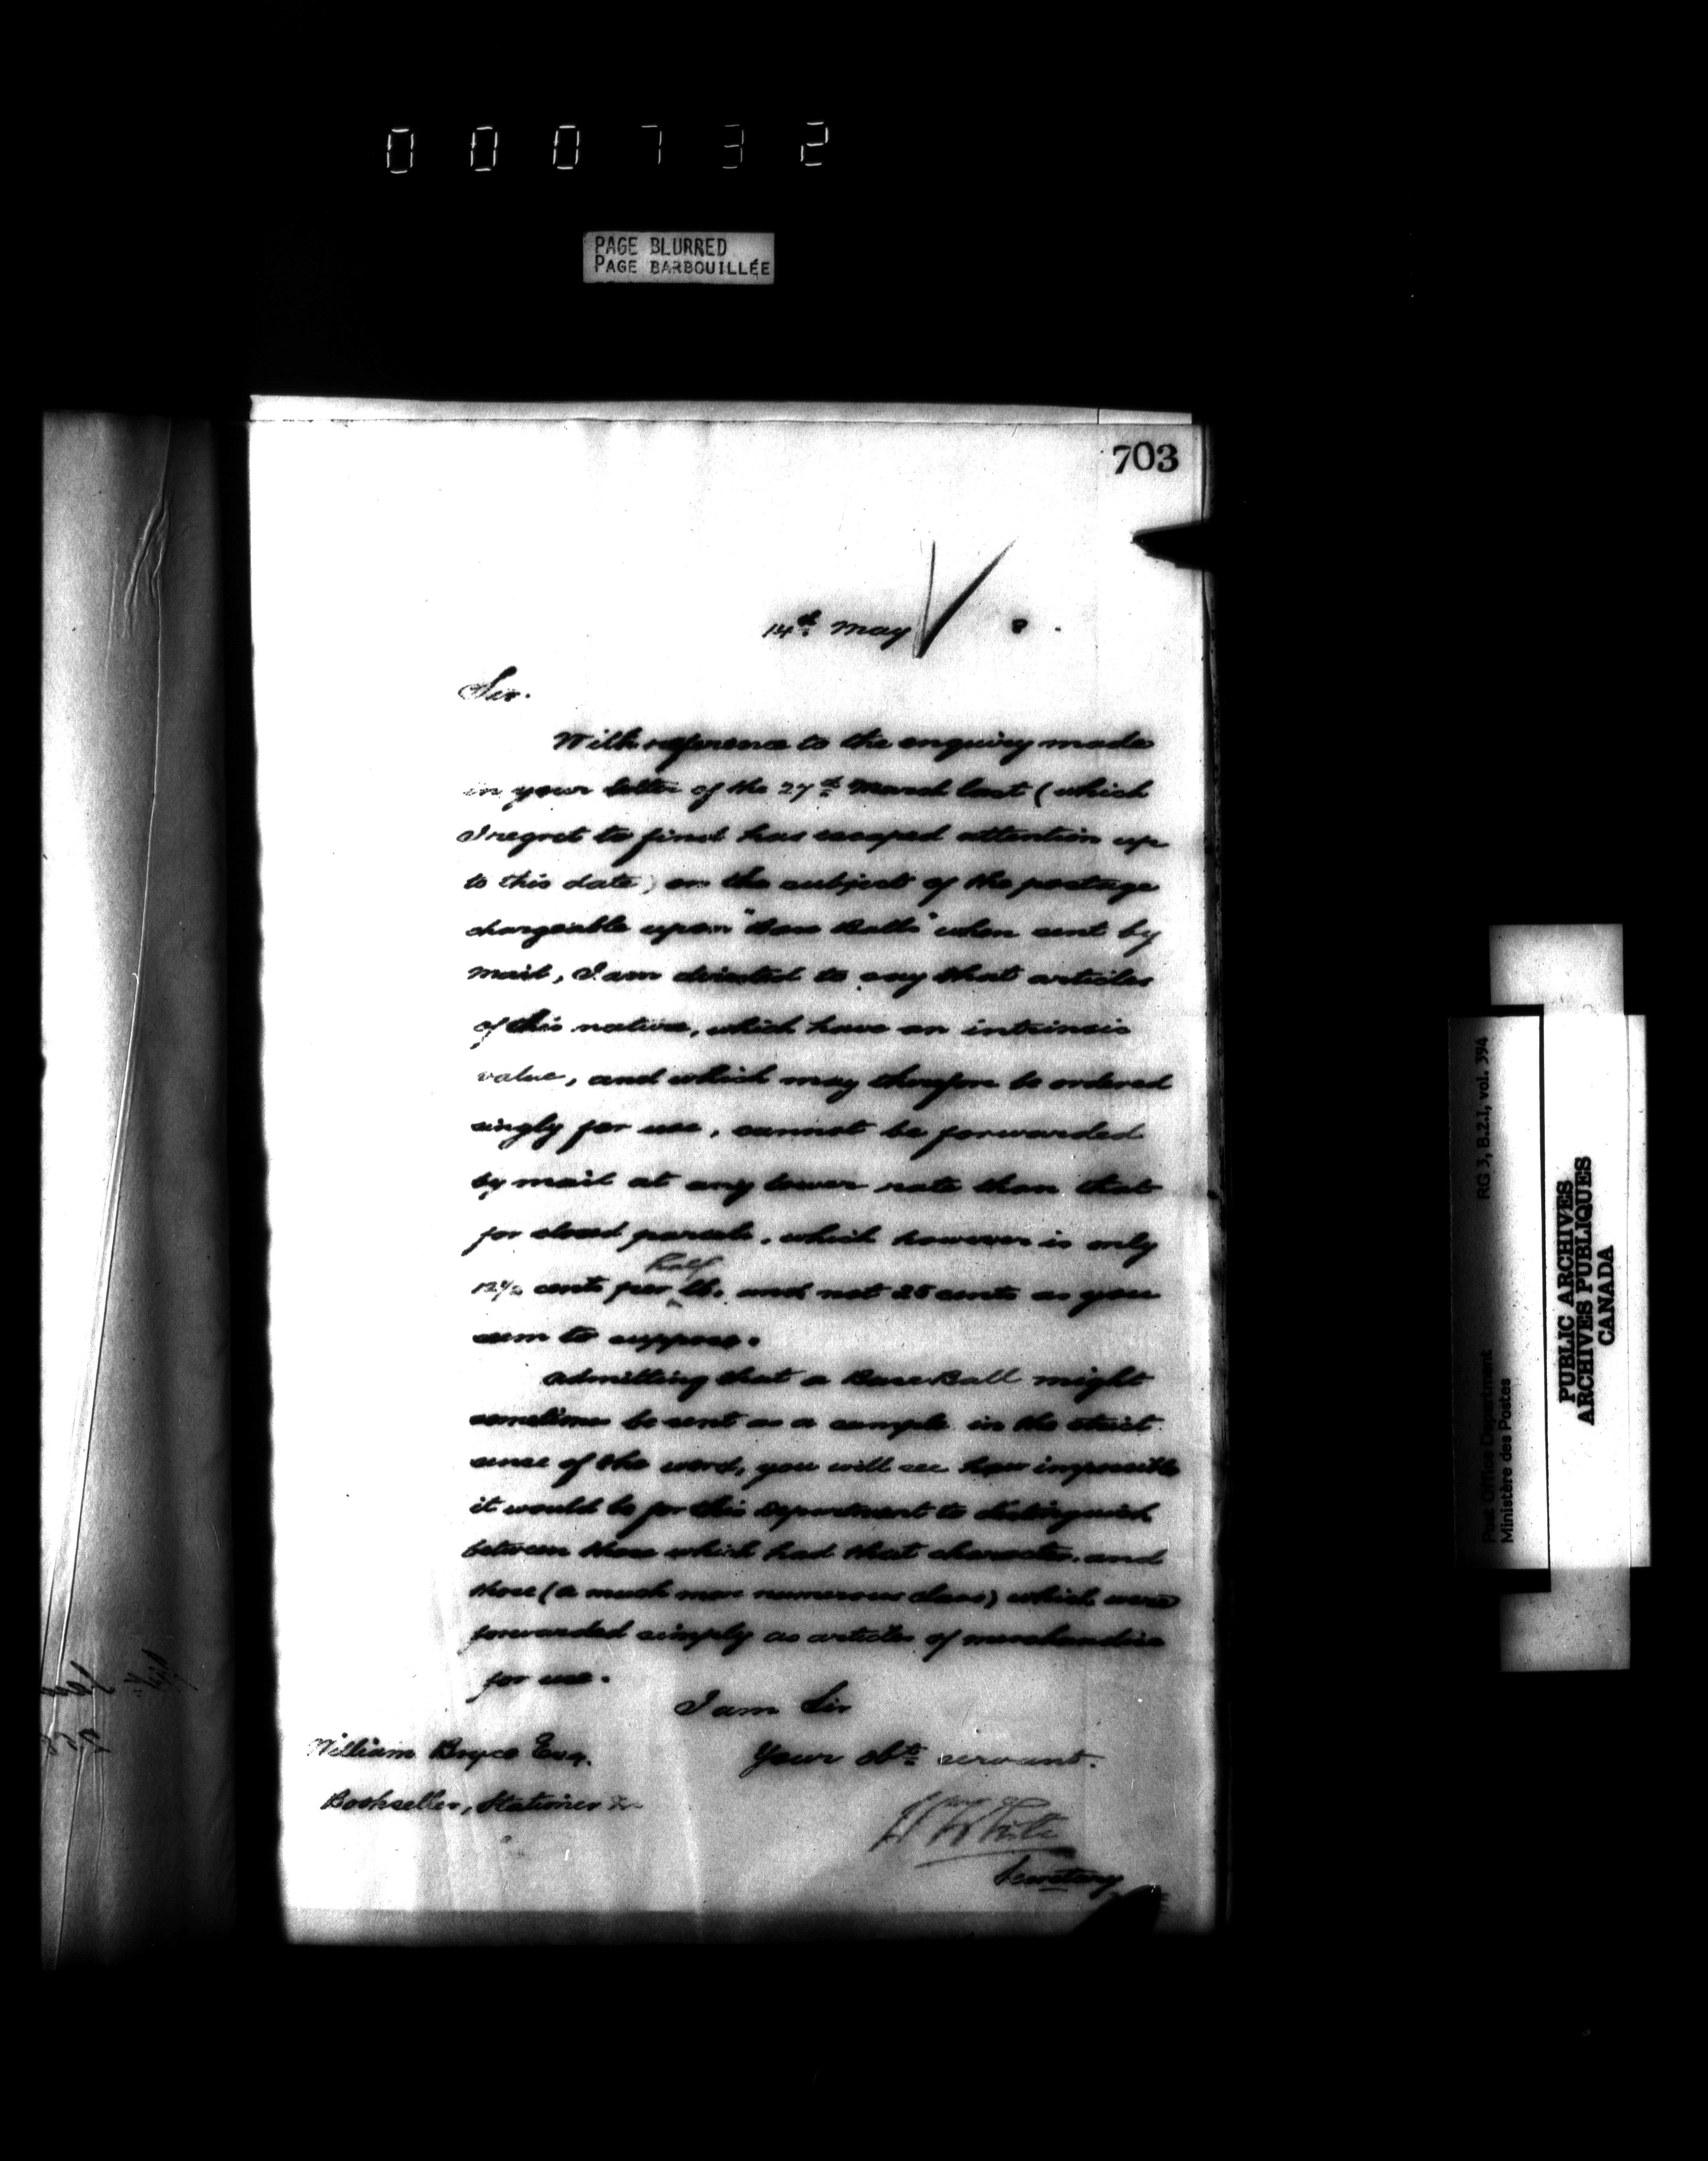 000732
PAGE BLURRED
PAGE BARBOUILLÉE
703
14th May
Sir.
With reference to the enquiry made
in your letter of the 27th March last (which
I regret to find has escaped attention up
to this date) on the subject of the postage
chargeable upon "Base Balls" when sent by
mail, I am directed to say that articles
of this nature, which have an intrinsic
value, and which may therefore be ordered
singly for use, cannot be forwarded
by mail at any lower rate than that
for closed parcels, which however is only
12½ cents per half lb. and not 25 cents as you
seem to suppose.
Admitting that a Base Ball might
sometimes be sent as a sample in the strict
sense of the word, you will see how impossible
it would be for this Department to distinguish
between those which had that character and
those (a much more numerous class) which were
forwarded simply as articles of merchandise
for use.
I am Sir
Your obt. servant.
William Bryce Esq.
Bookseller, Stationer &c
White
Secretary
Post Office Department
Ministère des Postes
RG 3, B.2.1, vol. 394
PUBLIC ARCHIVES
ARCHIVES PUBLIQUES
CANADA